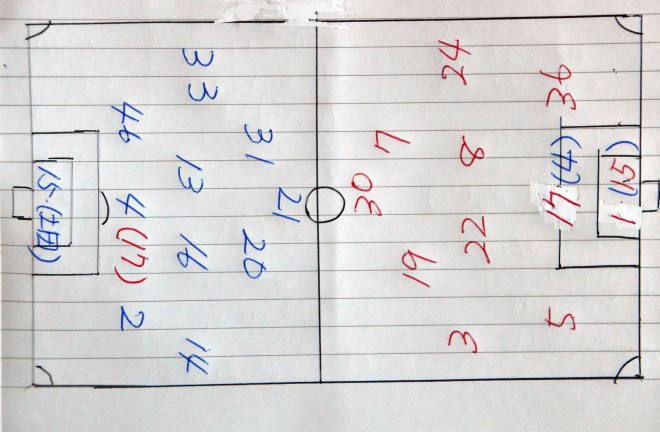 (15)·1
36 (4) 17 5
24 8 22 3
7 19
30
21
31 20
33 13 16 14
46 4(17) 2
15·